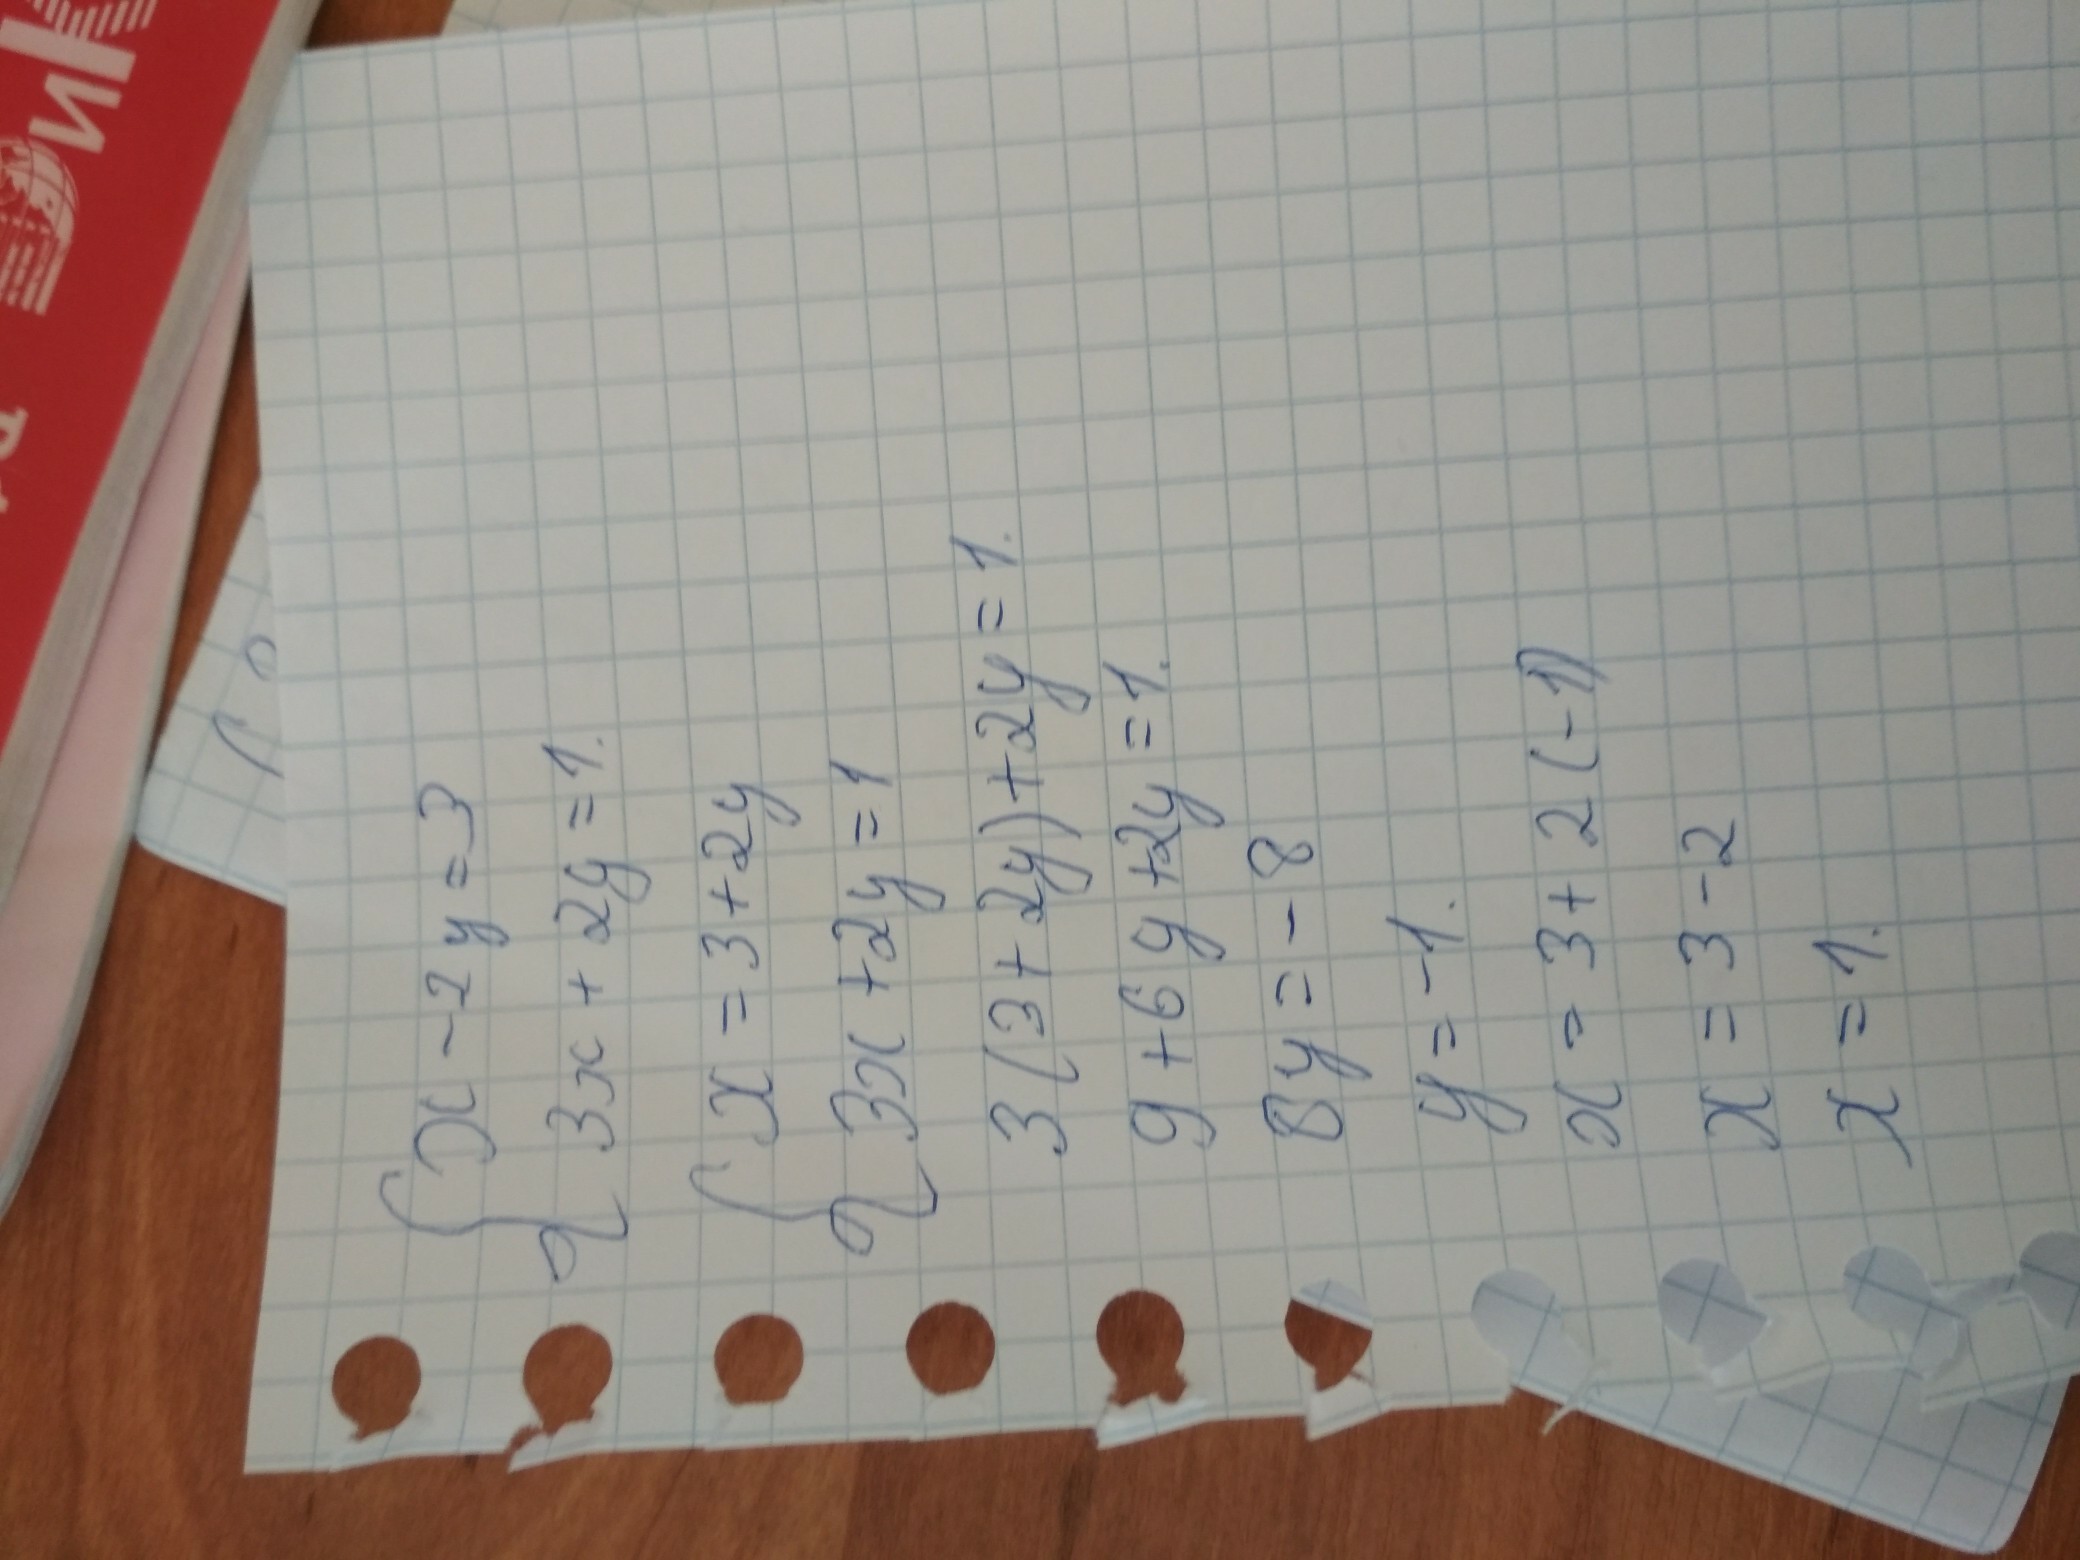 x - 2y = 3
3x + 2y = 1.
x = 3 + 2y
3x + 2y = 1
3(3 + 2y) + 2y = 1.
9 + 6y + 2y = 1.
8y = -8
y = -1.
x = 3 + 2(-1)
x = 3 - 2
x = 1.